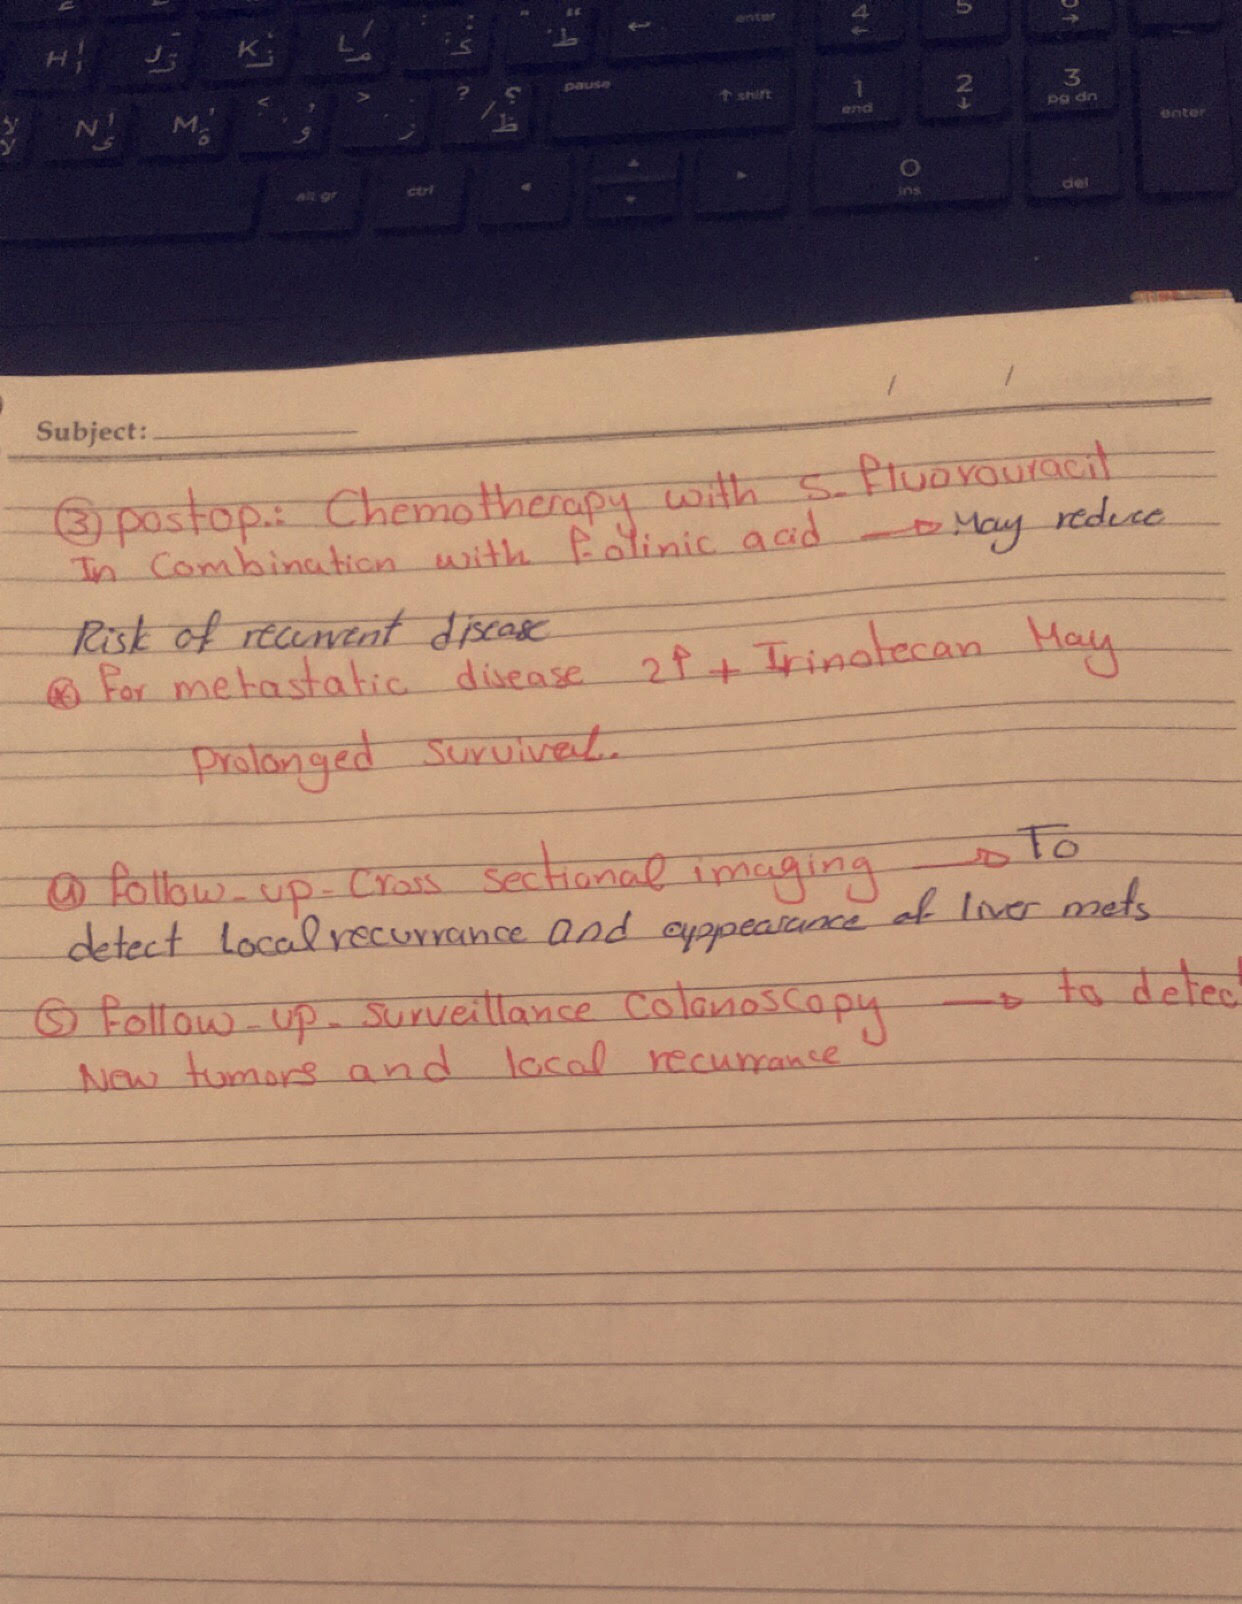 H
J
K
L
enter
4
5
N
M
pause
shift
1
end
2
3
pg dn
enter
alt gr
ctrl
0
ins
del
Subject:
/ /
③ postop.: Chemotherapy with 5-fluorouracil
In Combination with folinic acid → May reduce
Risk of recurrent disease
For metastatic disease 2↑ + Irinotecan May
Prolonged survival.
④ follow-up-Cross sectional imaging → To
detect local recurrance and appearance of liver mets
⑤ follow-up-surveillance Colonoscopy → to detect
New tumors and local recurrance